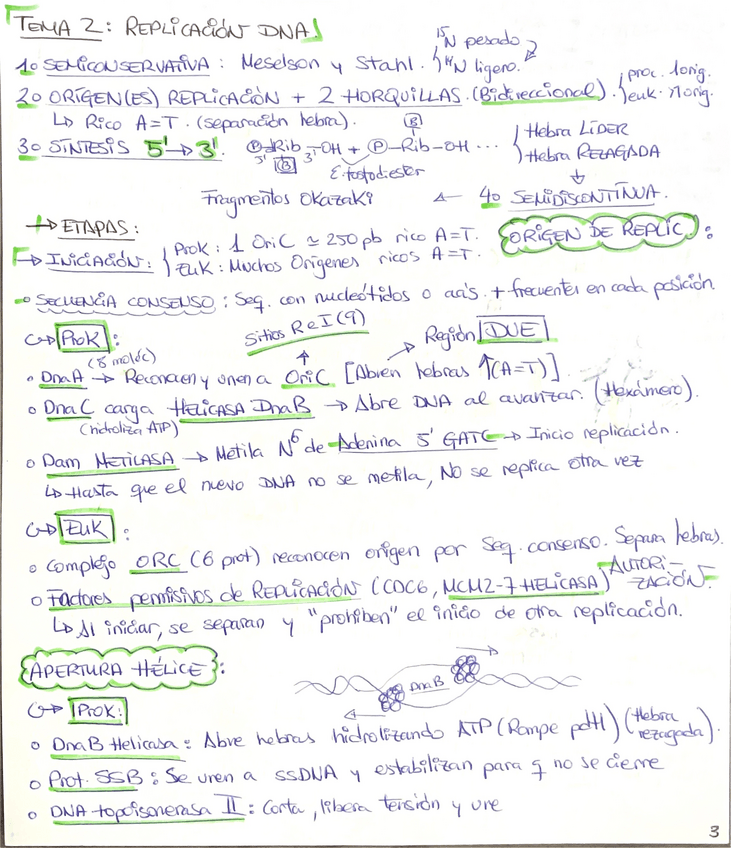 TEMA 2: REPLICACIÓN DNA
1º SEMICONSERVATIVA: Meselson y Stahl. 15N pesado 14N ligero.
2º ORÍGEN(ES) REPLICACIÓN + 2 HORQUILLAS. (Bidireccional). proc. 1 orig. euk. >1 orig.
↳ Rico A=T. (separación hebra).
3º SÍNTESIS 5'→3'. P-Rib-OH + P-Rib-OH ... Hebra LÍDER
5' B 3' B Hebra REZAGADA
E. fosfodiester
Fragmentos Okazaki ← 4º SEMIDISCONTÍNUA.
→ ETAPAS:
ORIGEN DE REPLIC.:
→ INICIACIÓN: Prok: 1 OriC ≃ 250 pb rico A=T.
Euk: Muchos Orígenes ricos A=T.
SECUENCIA CONSENSO: Seq. con nucleótidos o aa's + frecuentes en cada posición.
↪ Prok: Sitios R e I (9) Región DUE
(8 moléc)
◦ DnaA → Reconocen y unen a OriC [Abren hebras ↑(A=T)].
◦ DnaC carga HELICASA DnaB → Abre DNA al avanzar. (Hexámero).
(hidroliza ATP)
◦ Dam METILASA → Metila N6 de Adenina 5' GATC → Inicio replicación.
↳ Hasta que el nuevo DNA no se metila, NO se replica otra vez
↪ EUK:
◦ Complejo ORC (6 prot) reconocen origen por Seq. consenso. Separa hebras.
◦ Factores permisivos de REPLICACIÓN (CDC6, MCM2-7 HELICASA) AUTORI-ZACIÓN.
↳ Al iniciar, se separan y "prohíben" el inicio de otra replicación.
APERTURA HÉLICE:
DnaB
↪ Prok:
◦ DnaB Helicasa: Abre hebras hidrolizando ATP (Rompe pdH) (Hebra rezagada).
◦ Prot. SSB: Se unen a ssDNA y estabilizan para q no se cierre
◦ DNA topoisomerasa II: Corta, libera tensión y une
3